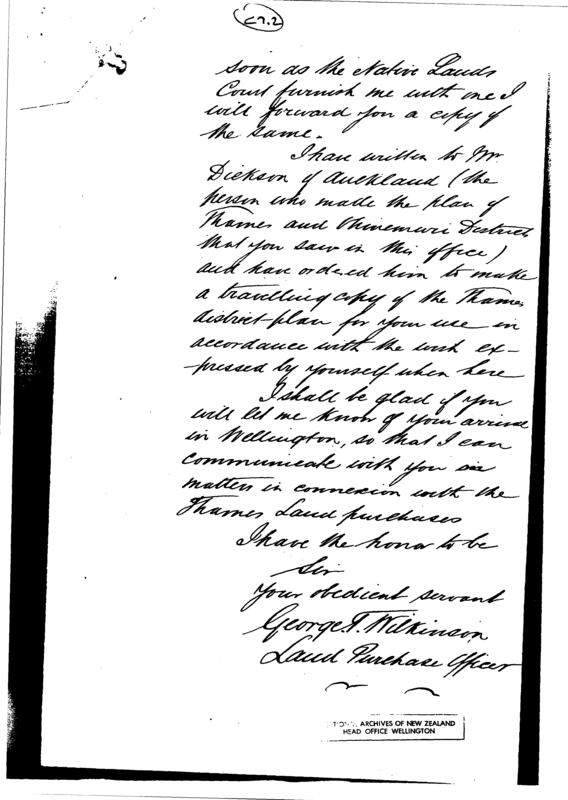 C7.2
soon as the Native Lands
Court furnish me with one I
will forward you a copy of
the same.
I have written to Mr
Dickson of Auckland (the
person who made the plan of
Thames and Ohinemuri Districts
that you saw in this office)
and have ordered him to make
a travelling copy of the Thames
district plan for your use in
accordance with the wish ex-
-pressed by yourself when here
I shall be glad if you
will let me know of your arrival
in Wellington, so that I can
communicate with you
matters in connexion with the
Thames Land purchases
I have the honor to be
Sir
Your obedient servant
George T. Wilkinson
Land Purchase Officer
ARCHIVES OF NEW ZEALAND
HEAD OFFICE WELLINGTON